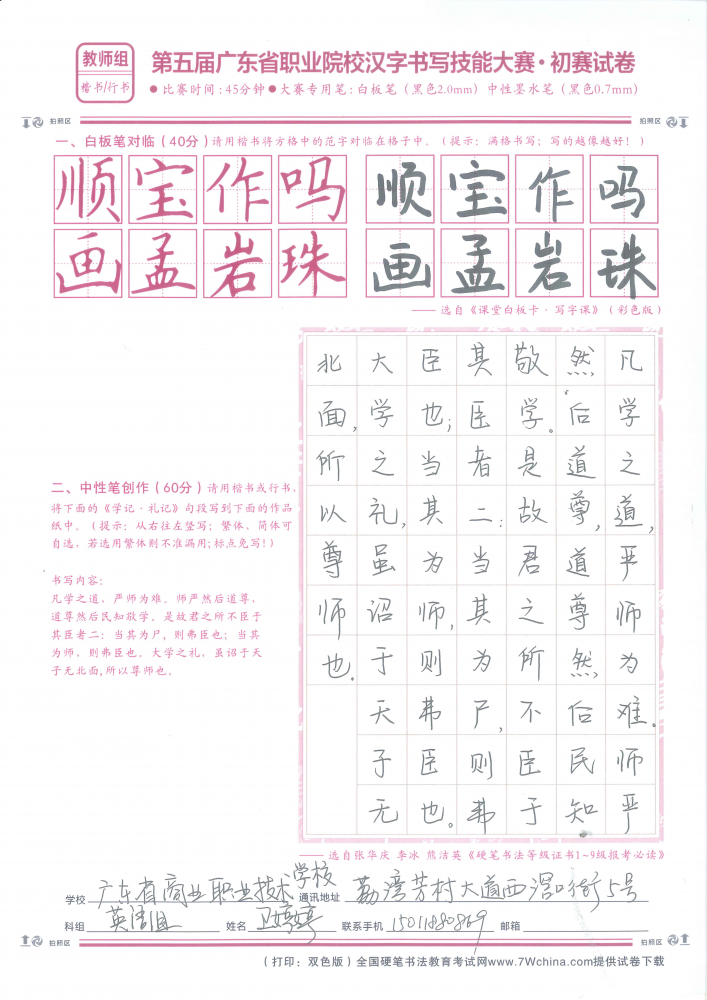 教师组
楷书/行书
第五届广东省职业院校汉字书写技能大赛·初赛试卷
●比赛时间:45分钟●大赛专用笔:白板笔（黑色2.0mm）中性墨水笔（黑色0.7mm）
拍照区 拍照区
一、白板笔对临（40分）请用楷书将方格中的范字对临在格子中。（提示：满格书写；写的越像越好！）
顺宝作吗 顺宝作吗
画孟岩珠 画孟岩珠
——选自《课堂白板卡·写字课》（彩色版）
二、中性笔创作（60分）请用楷书或行书，
将下面的《学记·礼记》句段写到下面的作品
纸中。（提示：从右往左竖写；繁体、简体可
自选，若选用繁体则不准漏用;标点免写!）
书写内容：
凡学之道，严师为难。师严然后道尊，
道尊然后民知敬学。是故君之所不臣于
其臣者二：当其为尸，则弗臣也；当其
为师，则弗臣也。大学之礼，虽诏于天
子无北面,所以尊师也。
凡学之道，严师为难。师严
然后道尊，道尊然，后民知
敬学。是故君之所不臣于
其臣者二：当其为尸，则弗
臣也；当其为师，则弗臣也。
大学之礼，虽诏于天子无
北面，所以尊师也。
——选自张华庆 李冰 熊洁英《硬笔书法等级证书1~9级报考必读》
学校 广东省商业职业技术学校 通讯地址 荔湾芳村大道西滘口街5号
科组 英语组 姓名 卫婷婷 联系手机 15011880869 邮箱
拍照区 拍照区
（打印：双色版）全国硬笔书法教育考试网www.7Wchina.com提供试卷下载